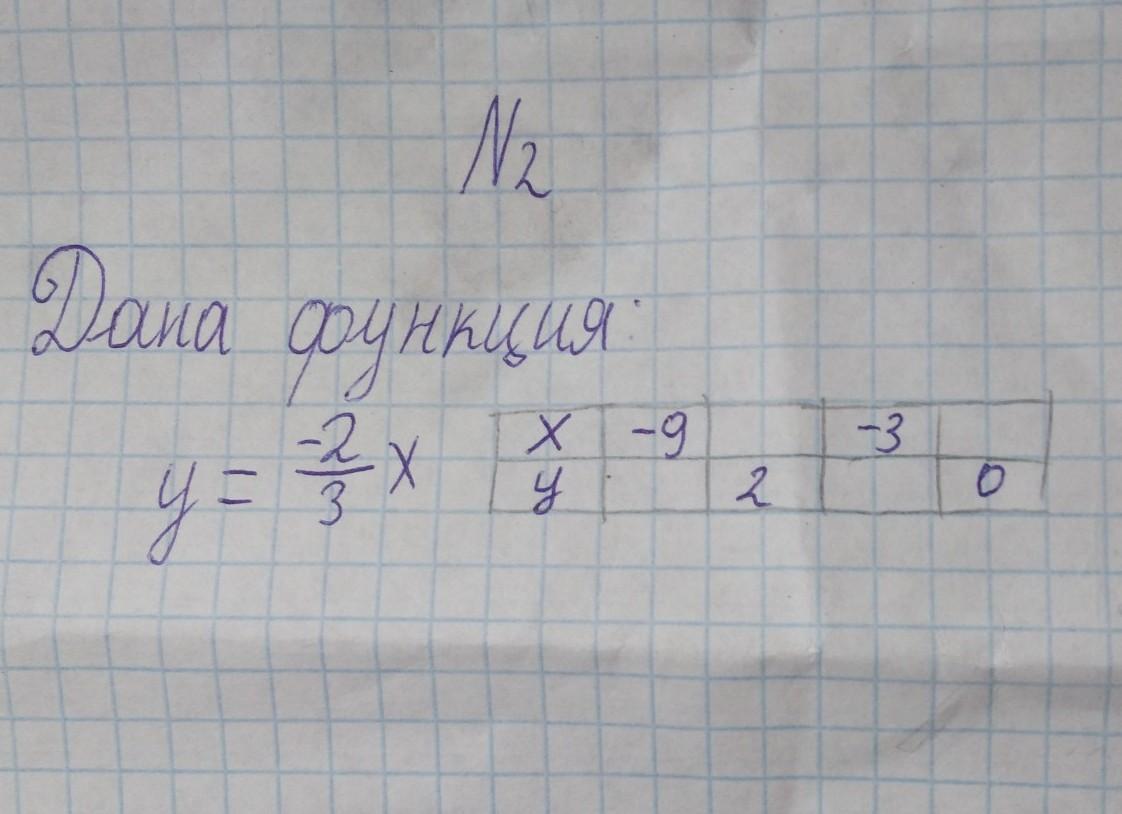 N2
Дана функция:
y = -2/3 x
x -9 -3
y 2 0